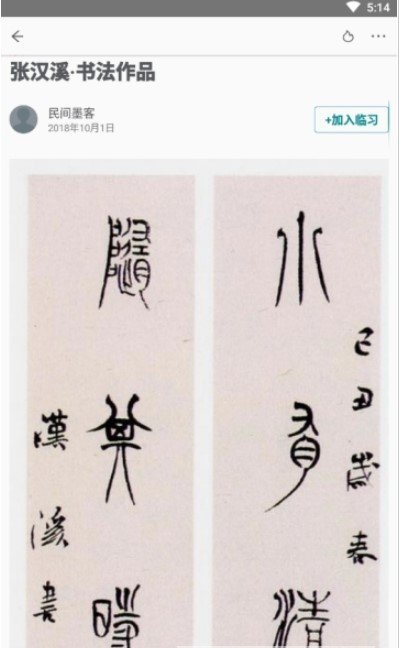 5:14
张汉溪·书法作品
民间墨客
2018年10月1日
+加入临习
己丑歲春
小有清
隨其時
漢溪書